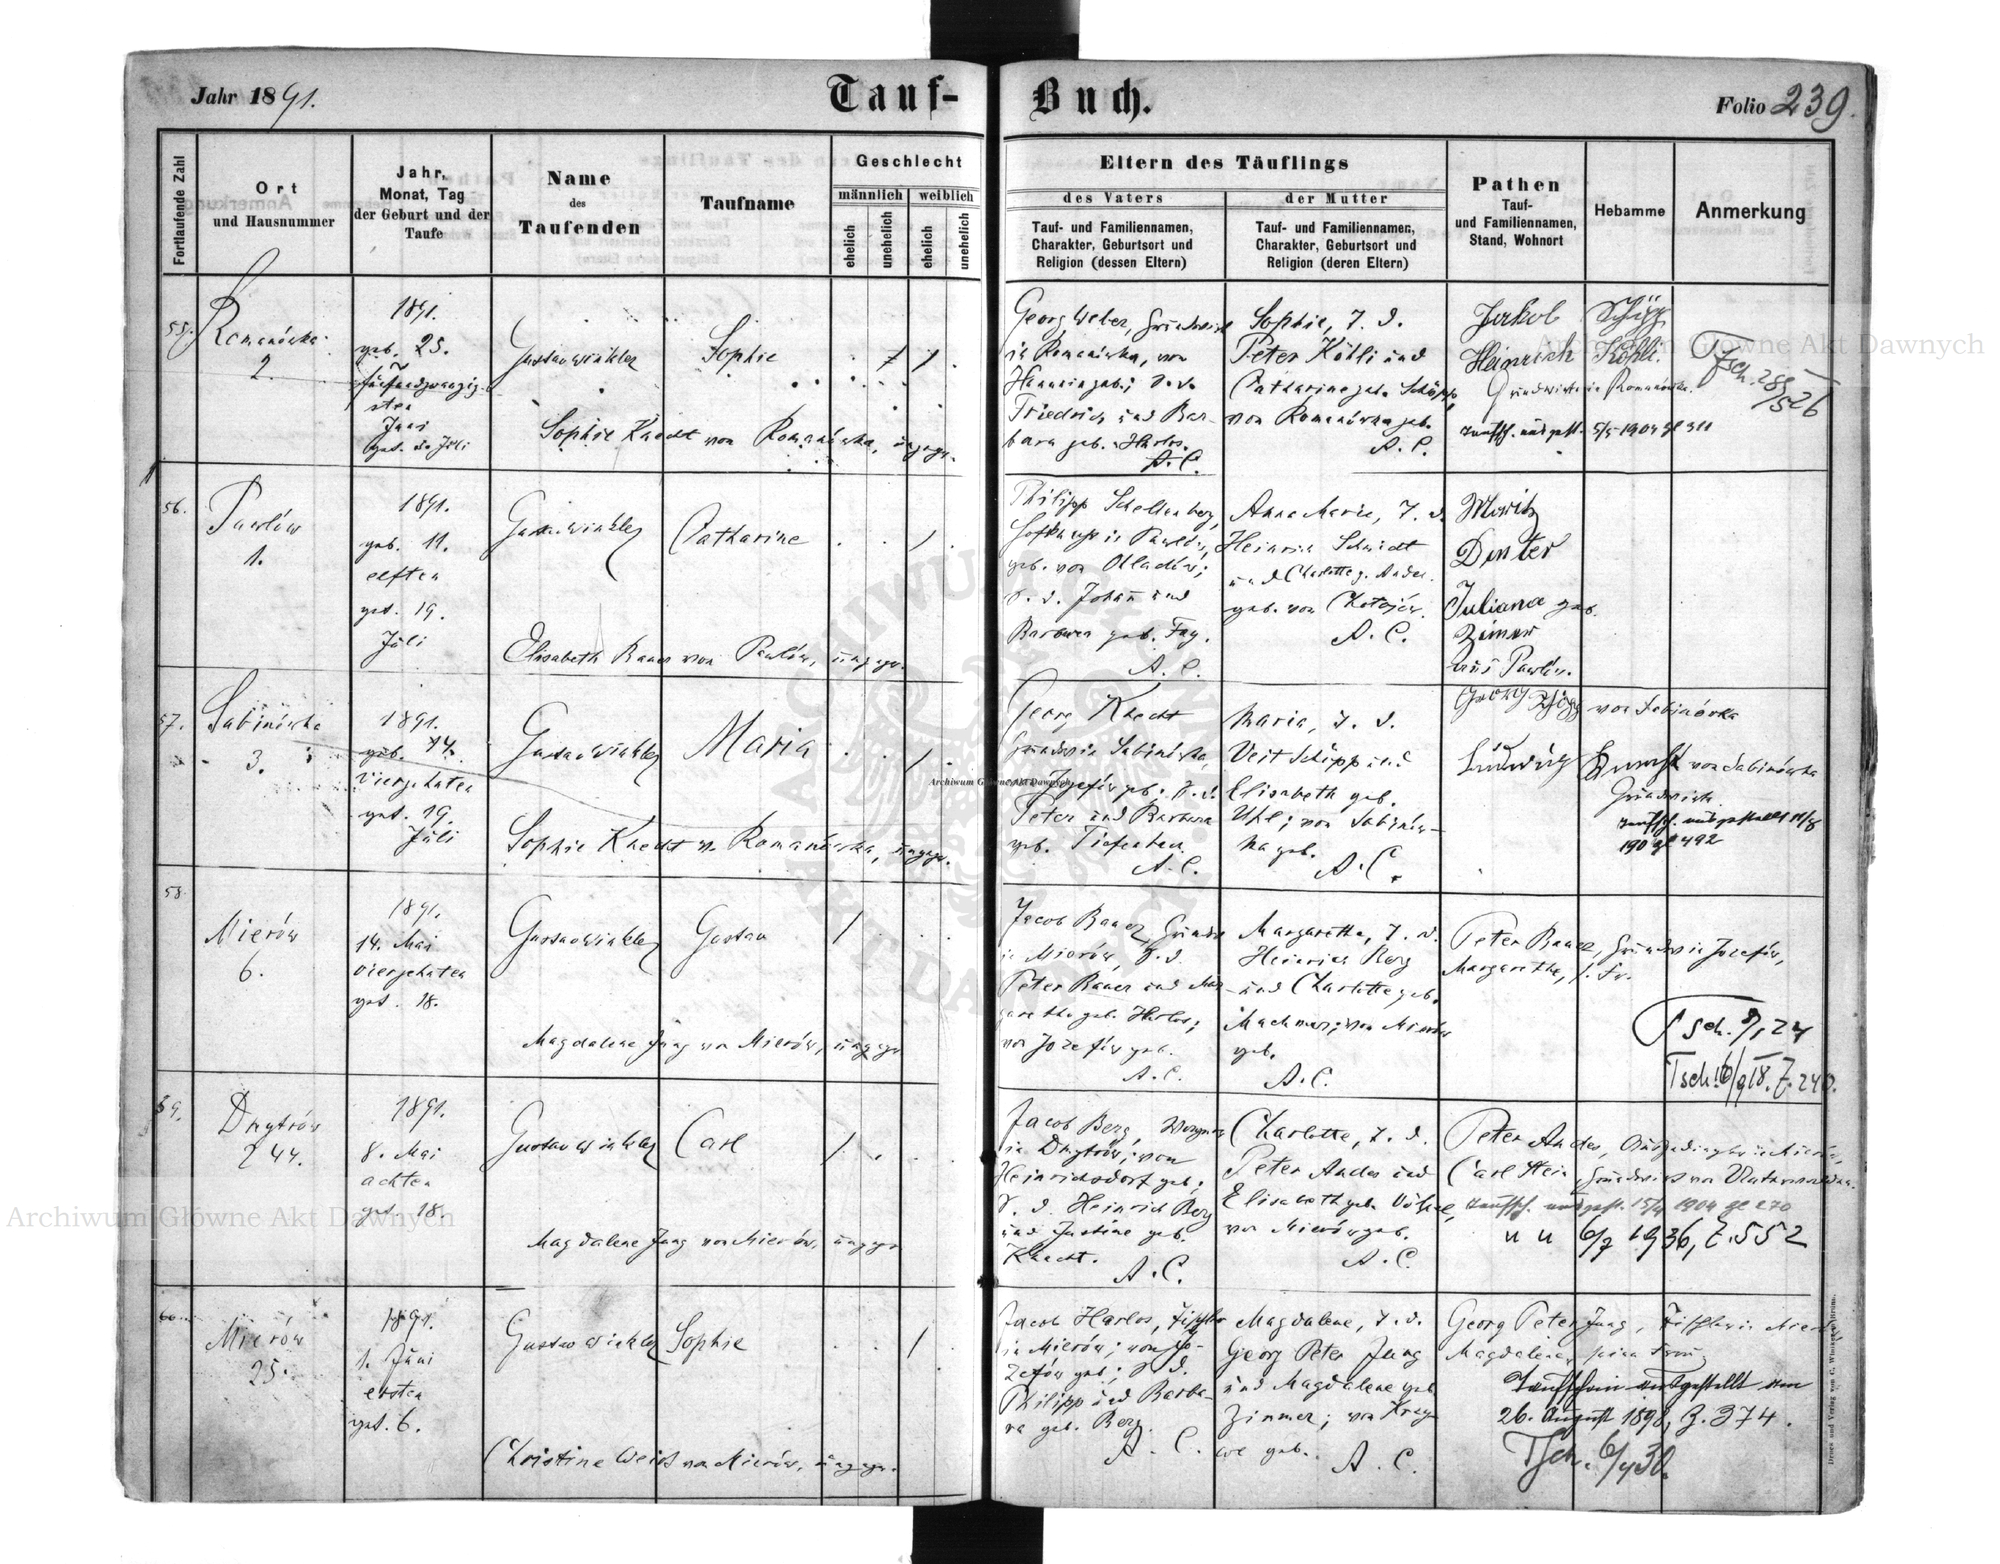 Jahr 1891.
Tauf-
Buch.
Folio 239.
Fortlaufende Zahl
Ort
und Hausnummer
Jahr,
Monat, Tag
der Geburt und der
Taufe
Name
des
Taufenden
Taufname
Geschlecht
männlich
weiblich
ehelich
unehelich
ehelich
unehelich
Eltern des Täuflings
des Vaters
Tauf- und Familiennamen,
Charakter, Geburtsort und
Religion (dessen Eltern)
der Mutter
Tauf- und Familiennamen,
Charakter, Geburtsort und
Religion (deren Eltern)
Pathen
Tauf-
und Familiennamen,
Stand, Wohnort
Hebamme
Anmerkung
55.
Romanówka
2.
1891.
geb. 25.
fünfundzwanzig-
sten
Juni
get. 5. Juli
Gustav Winkler
Sophie
Sophie Knecht von Romanówka, ungepr.
Georg Weber, Grundwirt
in Romanówka, von
Hanunin geb.; S. d.
Friedrich und Bar-
bara geb. Harlos.
A. C.
Sophie, T. d.
Peter Köhli und
Catharine geb. Schöpp,
von Romanówka geb.
A. C.
Jakob
Heinrich Köhli.
Grundwirte in Romanówka.
Taufsch. ausgest. 5/5 1904 Zl 311
Tsch. 28/5 26
56.
Pawlów
1.
1891.
geb. 11.
elften
get. 19.
Juli
Gustav Winkler
Catharine
Elisabeth Bauer von Pawlów, ungepr.
Philipp Schellenberg,
in Pawlów,
geb. von
S. d. Johann und
Barbara geb. Fay.
A. C.
Anna Marie, T. d.
Heinrich Schmidt
und Charlotte g. Andes.
geb. von Chotojów.
A. C.
Moritz
Dinter
Juliana geb.
aus Pawlów.
57.
Sabinówka
3.
1891.
geb. 14.
vierzehnten
get. 19.
Juli
Gustav Winkler
Maria
Sophie Knecht v. Romanówka, ungepr.
Georg Knecht
Grundw. in Sabinówka,
Józefów geb.; S. d.
Peter und Barbara
geb. Tiefenbach
A. C.
Maria, T. d.
Veit Schöpp und
Elisabeth geb.
Uhl; von Sabinów-
ka geb.
A. C.
Georg Schöpp von Sabinówka
Ludwig Knecht von Sabinówka
Grundwirth.
Taufsch. ausgestellt
190 Zl 492
58.
Mierów
6.
1891.
14. Mai
vierzehnten
get. 18.
Gustav Winkler
Gustav
Magdalene Jung von Mierów, ungepr.
Jacob Bauer, Grundw.
in Mierów, S. d.
Peter Bauer und Mar-
garetha geb. Harlos;
von Józefów geb.
A. C.
Margaretha, T. d.
Heinrich Berg
und Charlotte geb.
Machmer; von Mierów
geb.
A. C.
Peter Bauer, Grundw. in Józefów,
Margarethe, s. Fr.
Tsch. 9/1 24
Tsch. 6/9 18. Z. 240.
59.
Dmytrów
244.
1891.
8. Mai
achten
get. 18.
Gustav Winkler
Carl
Magdalene Jung von Mierów, ungepr.
Jacob Berg, Wagner
in Dmytrów, von
Heinrichsdorf geb.;
S. d. Heinrich Berg
und Justine geb.
Knecht.
A. C.
Charlotte, T. d.
Peter Andes und
Elisabeth geb. Völpel,
von Mierów geb.
A. C.
Peter Andes, Ausgedinger in Mierów,
Carl Stein, Grundwirt von Unterwalden.
Taufsch. ausgest. 15/4 1904 Zl 270
" " 6/7 1936, Z. 552
60.
Mierów
25.
1891.
1. Juni
ersten
get. 6.
Gustav Winkler
Sophie
Christine Weiß von Mierów, ungepr.
Jacob Harlos, Tischler
in Mierów; von Jó-
zefów geb.; S. d.
Philipp und Barba-
ra geb. Berg.
A. C.
Magdalene, T. d.
Georg Peter Jung
und Magdalene geb
Zimmer; von
geb.
A. C.
Georg Peter Jung, Tischler in Mierów
Magdalena, seine Frau
Taufschein ausgestellt am
26. August 1898, Z. 374.
Tsch. 6/4 30.
Druck und Verlag von C. Winiker, Brünn.
Archiwum Główne Akt Dawnych
Archiwum Główne Akt Dawnych
Archiwum Główne Akt Dawnych
ARCHIWUM GŁÓWNE AKT DAWNYCH